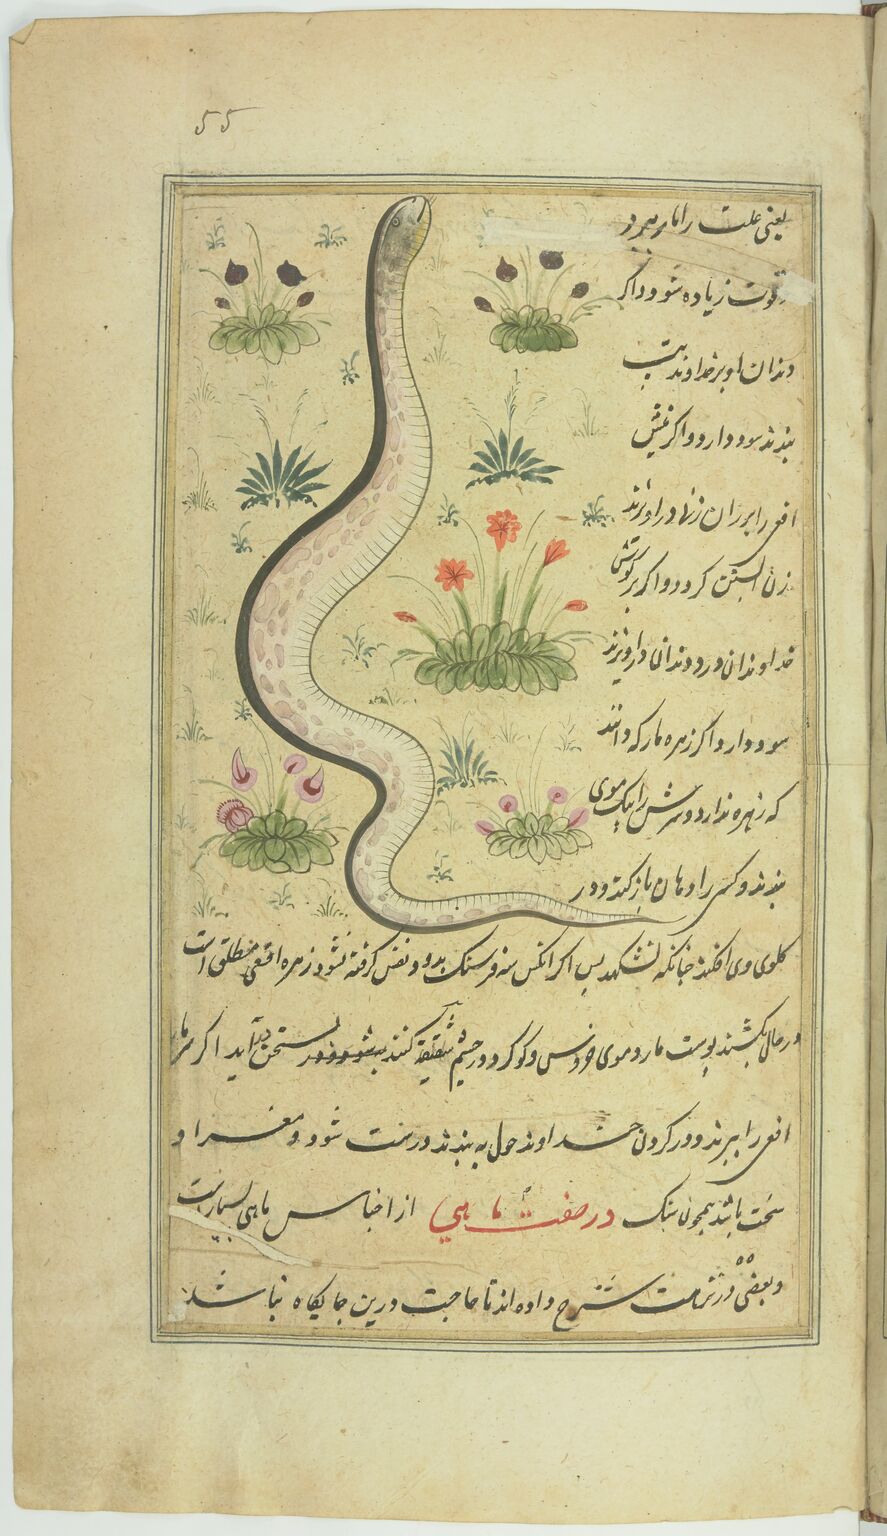 55
یعنی علت را ببرد
و قوت زیاده شود و اگر
دندان او بر خداوند تب
بندند سود دارد و اگر نیش
افعی را بر ران زنها در آویزند
زن آبستن گردد و اگر بر گوش
خداوندان درد دندان در آویزند
سود دارد و اگر زهره مار که دانند
که زهره ندارد و سرش را بیک موی
بندند و کسی را دهان باز کنند و در
گلوی وی افکنند چنانکه نشکهد پس اگر آنکس سه فرسنک بدود نفس گرفته نشود زهره افعی مطلق است
در حال بکشند پوست مار و موی خروس و گوگرد در چشم شقیقه کنند به شود آید اگر سر مار
افعی را ببرند و در گردن خداوند حول به بندند درست شود و مغز او
سخت باشد همچون سنک در صفت ماهی از اجناس ماهی بسیار است
و بعضی در شرح داده اند تا حاجت درین جایگاه نباشد